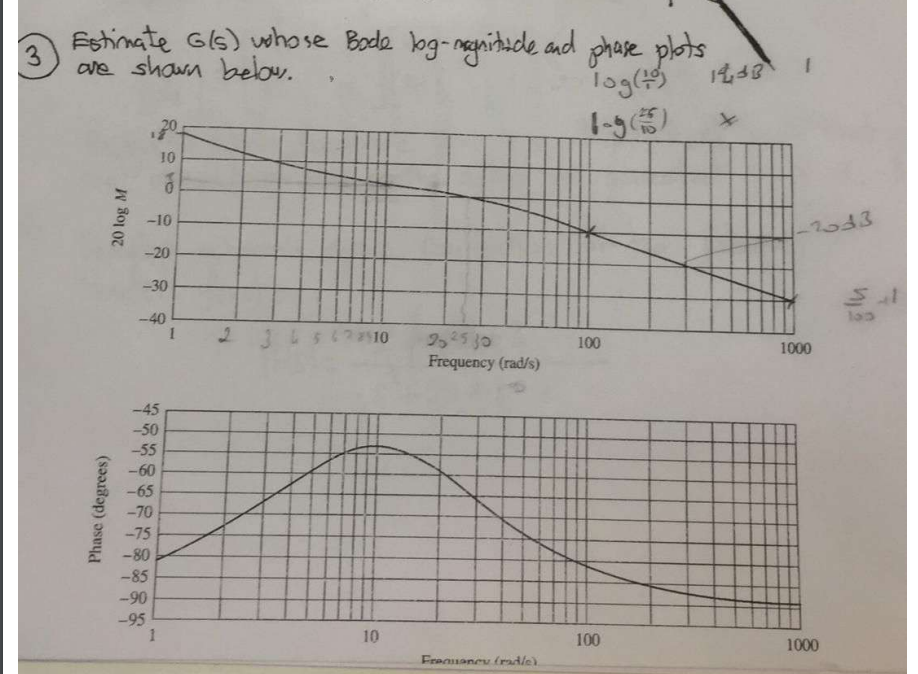 3 Estimate G(s) whose Bode log-magnitude and phase plots
are shown below.
log(10/1) 18dB 1
log(25/10) x
20 log M
20
18
10
0
-10
-20
-30
-40
-20dB
1 2 3 4 5 6 7 8 9 10 20 25 30 100 1000
Frequency (rad/s)
Phase (degrees)
-45
-50
-55
-60
-65
-70
-75
-80
-85
-90
-95
1 10 100 1000
Frequency (rad/s)